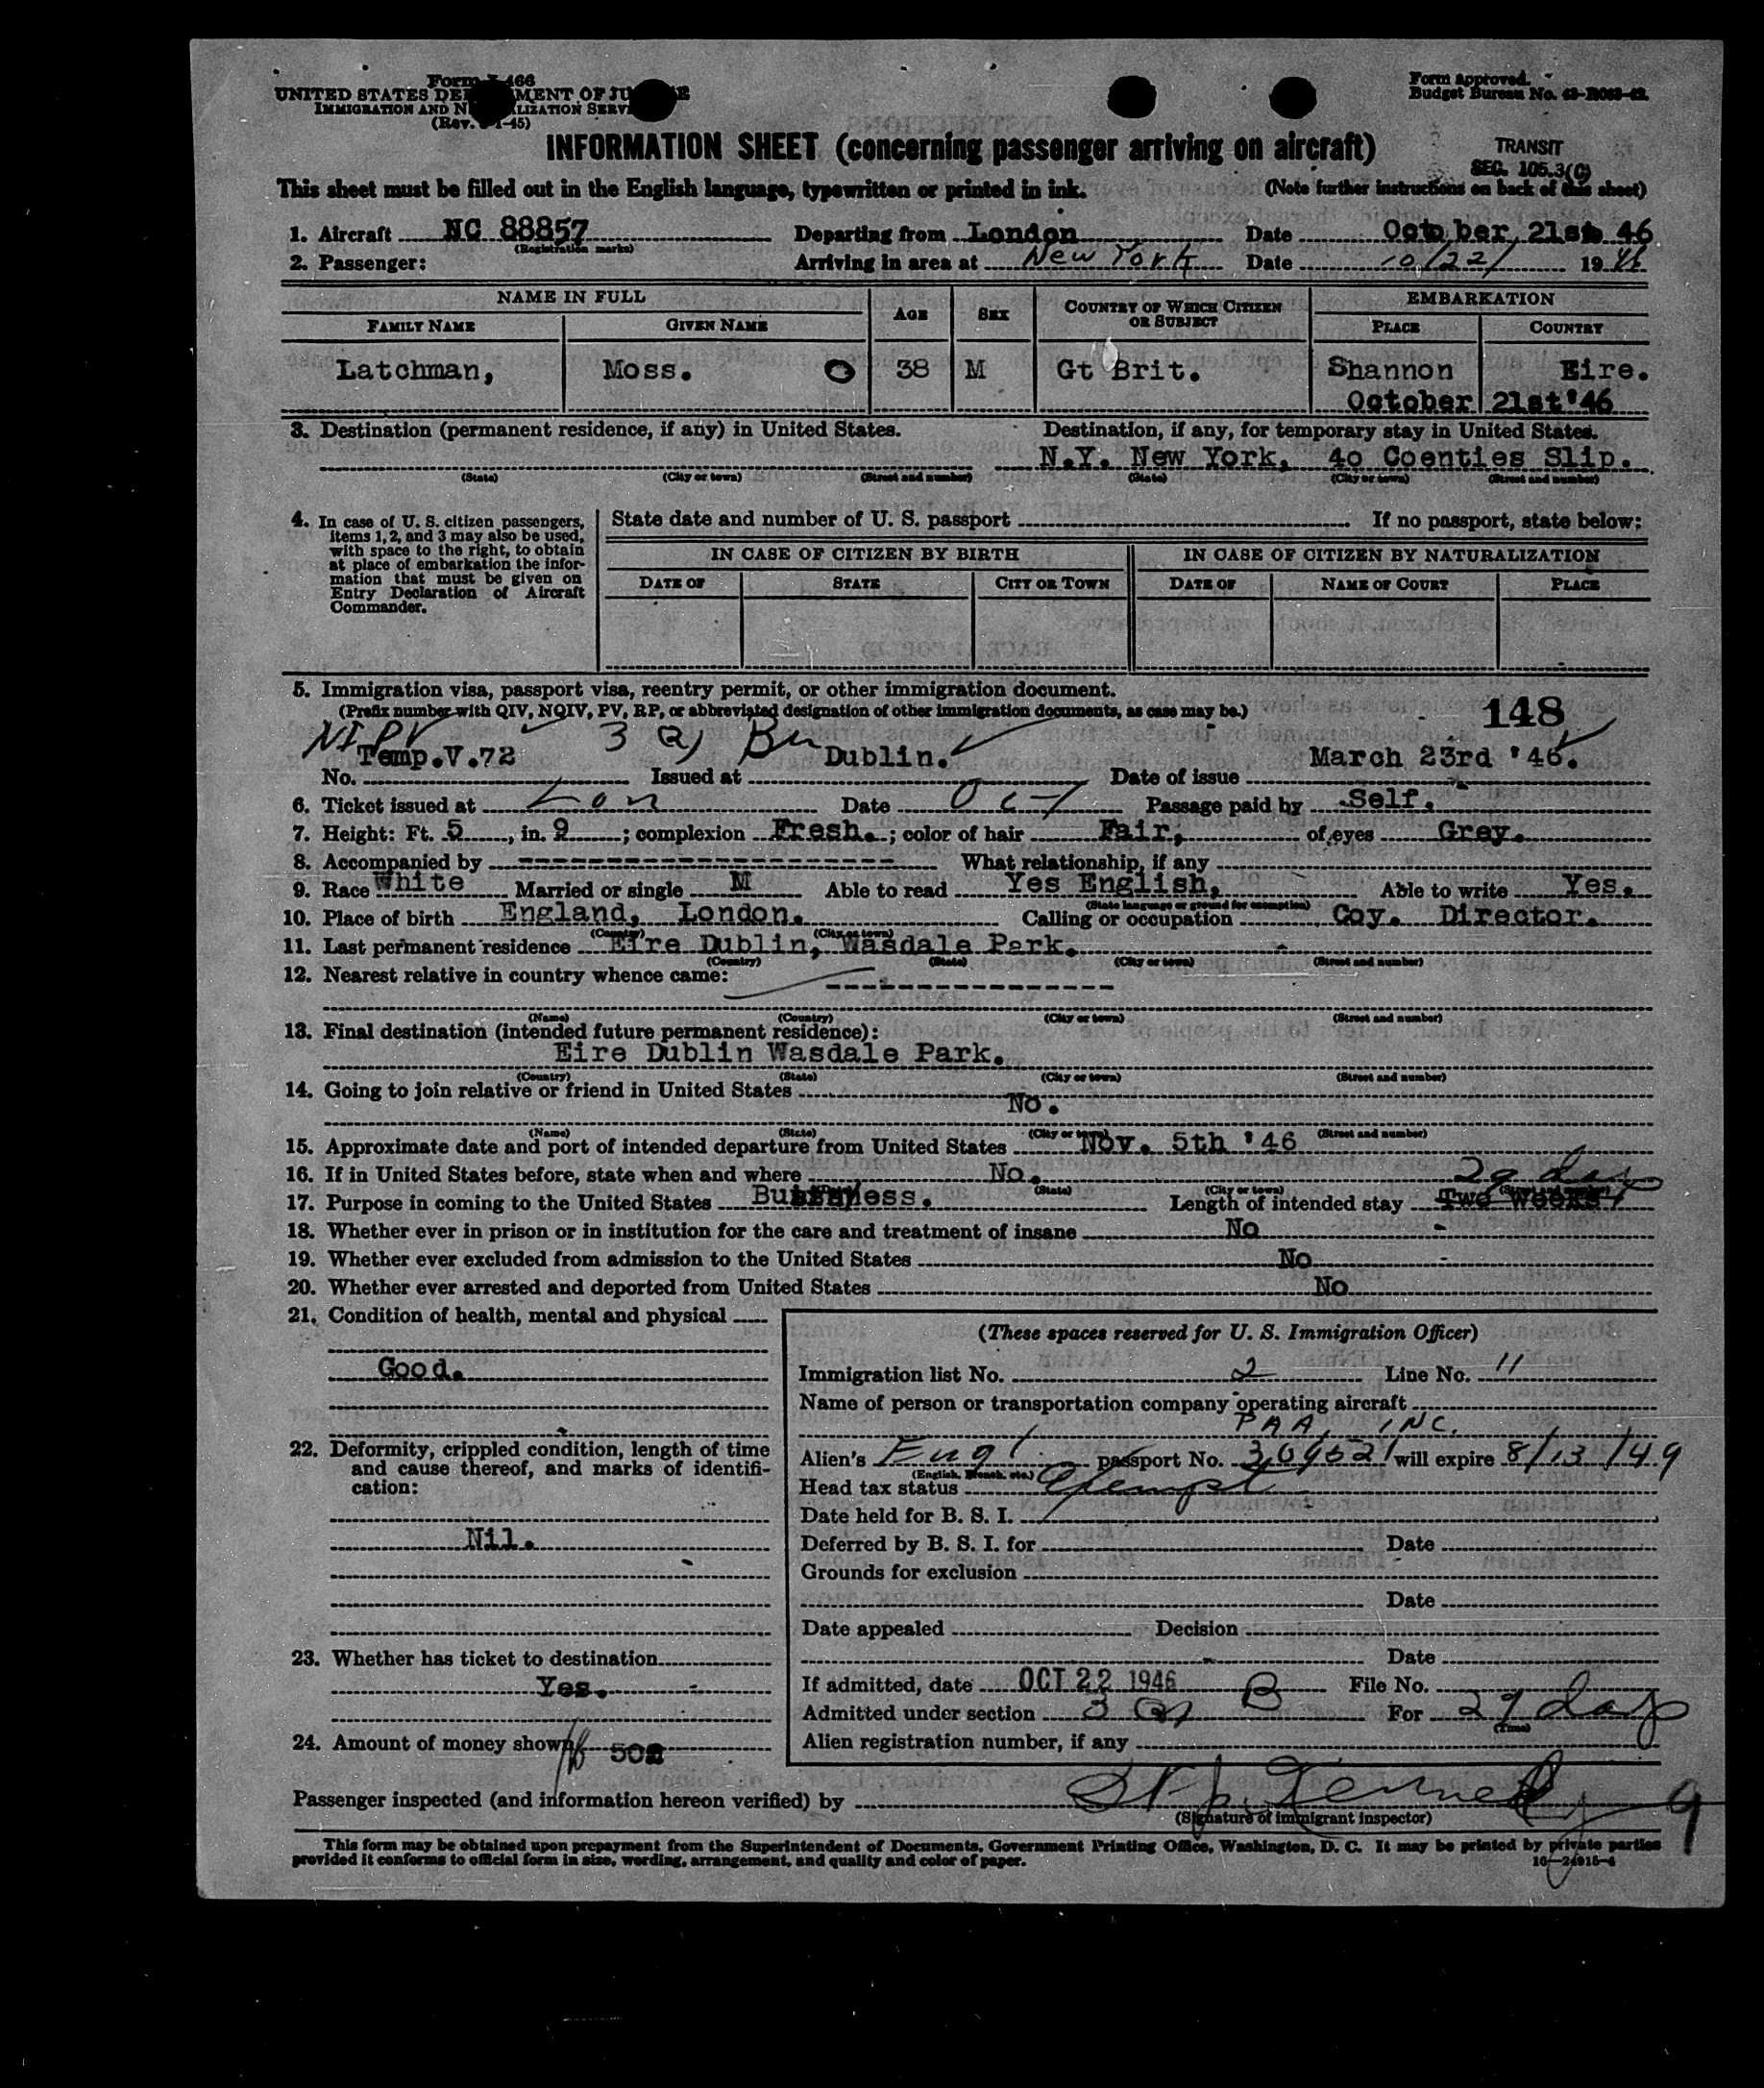 Form I-466
UNITED STATES DEPARTMENT OF JUSTICE
IMMIGRATION AND NATURALIZATION SERVICE
(Rev. -1-45)
Form approved.
Budget Bureau No. 43-R083-42.
INFORMATION SHEET (concerning passenger arriving on aircraft)
TRANSIT
SEC. 105.3(C)
This sheet must be filled out in the English language, typewritten or printed in ink. (Note further instructions on back of this sheet)
1. Aircraft NC 88857 Departing from London Date October 21st 46
(Registration marks)
2. Passenger: Arriving in area at New York Date 10/22/ 1946
NAME IN FULL AGE SEX COUNTRY OF WHICH CITIZEN OR SUBJECT EMBARKATION
FAMILY NAME GIVEN NAME PLACE COUNTRY
Latchman, Moss. O 38 M Gt Brit. Shannon Eire.
October 21st '46
3. Destination (permanent residence, if any) in United States. Destination, if any, for temporary stay in United States.
N.Y. New York, 40 Coenties Slip.
(State) (City or town) (Street and number) (State) (City or town) (Street and number)
4. In case of U. S. citizen passengers, items 1, 2, and 3 may also be used, with space to the right, to obtain at place of embarkation the information that must be given on Entry Declaration of Aircraft Commander.
State date and number of U. S. passport If no passport, state below:
IN CASE OF CITIZEN BY BIRTH IN CASE OF CITIZEN BY NATURALIZATION
DATE OF STATE CITY OR TOWN DATE OF NAME OF COURT PLACE
5. Immigration visa, passport visa, reentry permit, or other immigration document.
(Prefix number with QIV, NQIV, PV, RP, or abbreviated designation of other immigration documents, as case may be.) 148
NIPV 3 (2) Bu
No. Temp.V.72 Issued at Dublin. Date of issue March 23rd '46.
6. Ticket issued at Lon Date Oct Passage paid by Self.
7. Height: Ft. 5, in. 9; complexion Fresh.; color of hair Fair, of eyes Grey.
8. Accompanied by What relationship, if any
9. Race White Married or single M Able to read Yes English, Able to write Yes.
(State language or ground for exemption)
10. Place of birth England, London. Calling or occupation Coy. Director.
(Country) (City or town)
11. Last permanent residence Eire Dublin, Wasdale Park.
(Country) (State) (City or town) (Street and number)
12. Nearest relative in country whence came:
(Name) (Country) (City or town) (Street and number)
13. Final destination (intended future permanent residence):
Eire Dublin Wasdale Park.
(Country) (State) (City or town) (Street and number)
14. Going to join relative or friend in United States
No.
(Name) (State) (City or town) (Street and number)
15. Approximate date and port of intended departure from United States Nov. 5th '46
16. If in United States before, state when and where No. 29 days
(State) (City or town) (Street and number)
17. Purpose in coming to the United States Business. Length of intended stay Two Weeks,
18. Whether ever in prison or in institution for the care and treatment of insane No
19. Whether ever excluded from admission to the United States No
20. Whether ever arrested and deported from United States No
21. Condition of health, mental and physical
Good.
22. Deformity, crippled condition, length of time and cause thereof, and marks of identification:
Nil.
23. Whether has ticket to destination
Yes.
24. Amount of money shown 50
(These spaces reserved for U. S. Immigration Officer)
Immigration list No. 2 Line No. 11
Name of person or transportation company operating aircraft
PAA, INC.
Alien's Engl passport No. 309521 will expire 8/13/49
(English, French, etc.)
Head tax status Exempt
Date held for B. S. I.
Deferred by B. S. I. for Date
Grounds for exclusion
Date
Date appealed Decision
Date
If admitted, date OCT 22 1946 File No.
Admitted under section 3 (2) B For 29 days
(Time)
Alien registration number, if any
Passenger inspected (and information hereon verified) by
(Signature of immigrant inspector)
9
This form may be obtained upon prepayment from the Superintendent of Documents, Government Printing Office, Washington, D. C. It may be printed by private parties
provided it conforms to official form in size, wording, arrangement, and quality and color of paper. 16—24915-4